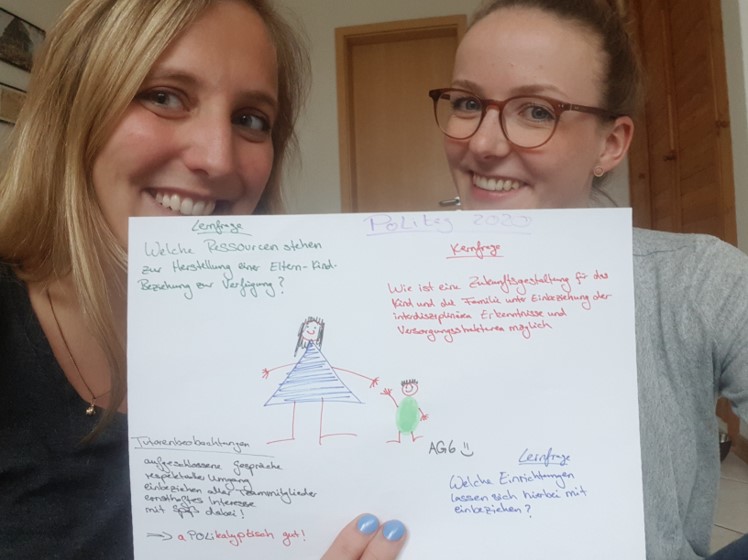 PoLiTag 2020
Lernfrage
Welche Ressourcen stehen
zur Herstellung einer Eltern-Kind-
Beziehung zur Verfügung?
Kernfrage
Wie ist eine Zukunftsgestaltung für das
Kind und die Familie unter Einbeziehung der
interdisziplinären Erkenntnisse und
Versorgungsstrukturen möglich
AG6
Tutorenbeobachtungen
aufgeschlossene Gespräche
respektvoller Umgang
einbeziehen aller Teammitglieder
ernsthaftes Interesse
mit Spaß dabei!
⇒ aPOLikalyptisch gut!
Lernfrage
Welche Einrichtungen
lassen sich hierbei mit
einbeziehen?